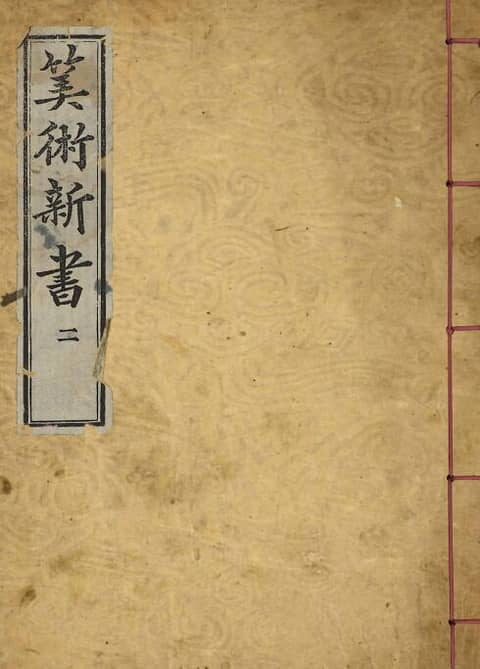 筭術新書 二